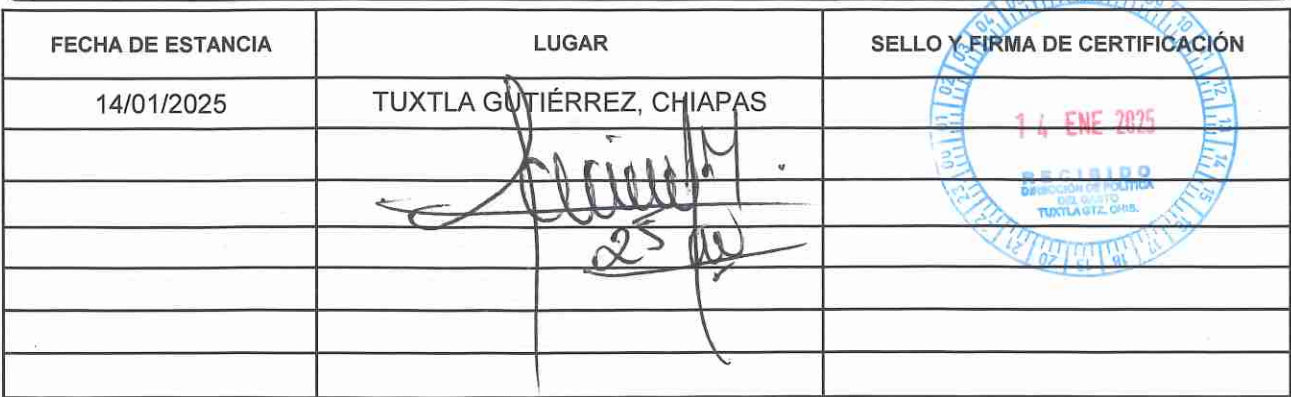 FECHA DE ESTANCIA LUGAR SELLO Y FIRMA DE CERTIFICACIÓN
14/01/2025 TUXTLA GUTIÉRREZ, CHIAPAS
14 ENE 2025
RECIBIDO
DIRECCIÓN DE POLÍTICA
DEL GASTO
TUXTLA GTZ. CHIS.